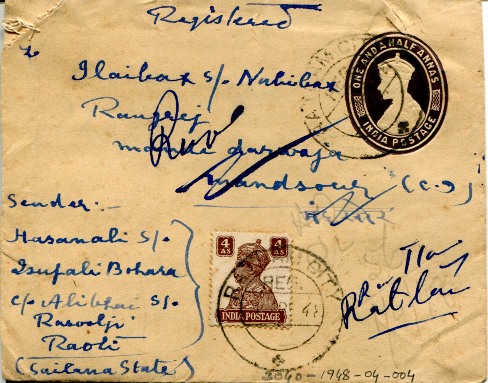 Registered
To
Ilaibax S/o Nabibax
Rangrej
darwaja
mandsour (C.I)
ONE AND A HALF ANNAS
INDIA POSTAGE
Sender:-
Hasanali S/o
Isufali Bohara
C/o Alibhai S/o
Rasodji
Raoti
(Sailana State)
4 AS
4 AS
INDIA POSTAGE
RATLAM CITY
RATLAM CITY
Ratlam
3040-1948-04-004